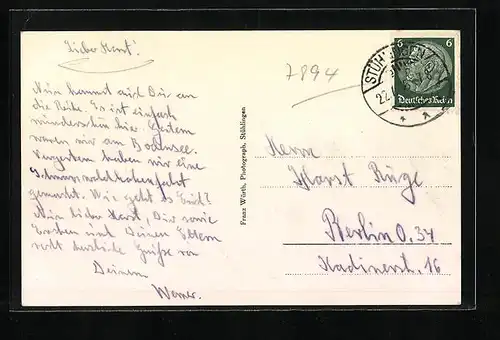 Lieber Horst!
Nun kommst auch Du an
die Reihe. Es ist einfach
wunderschön hier. Gestern
waren wir am Bodensee.
Vorgestern haben wir eine
Schwarzwaldhöhenfahrt
gemacht. Wie geht es Euch?
Nun lieber Horst, Dir sowie
und Deinen Eltern
recht herzliche Grüße von
Deinem
Werner.
7894
Franz Würth, Photograph, Stühlingen
STÜHLINGEN
22.
6 6
Deutsches Reich
Herrn
Horst Ruge
Berlin O. 34
Kadinerstr. 16